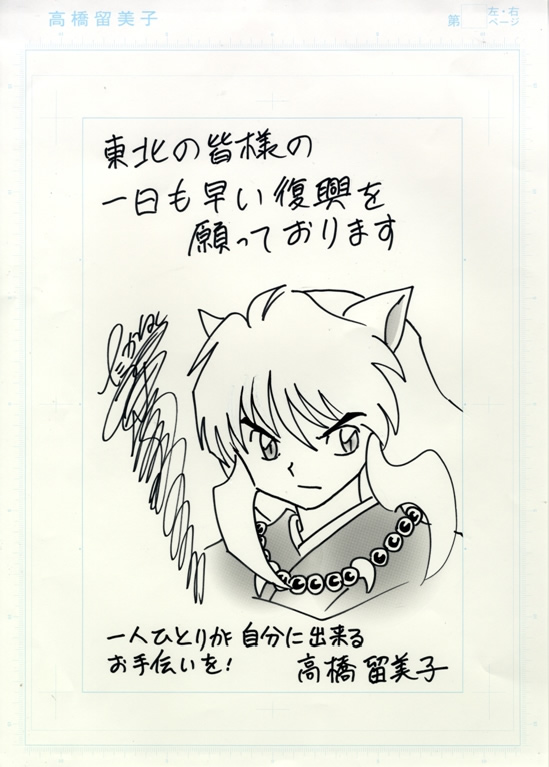 高橋留美子
第
左・右
ページ
東北の皆様の
一日も早い復興を
願っております
一人ひとりが自分に出来る
お手伝いを!
高橋留美子